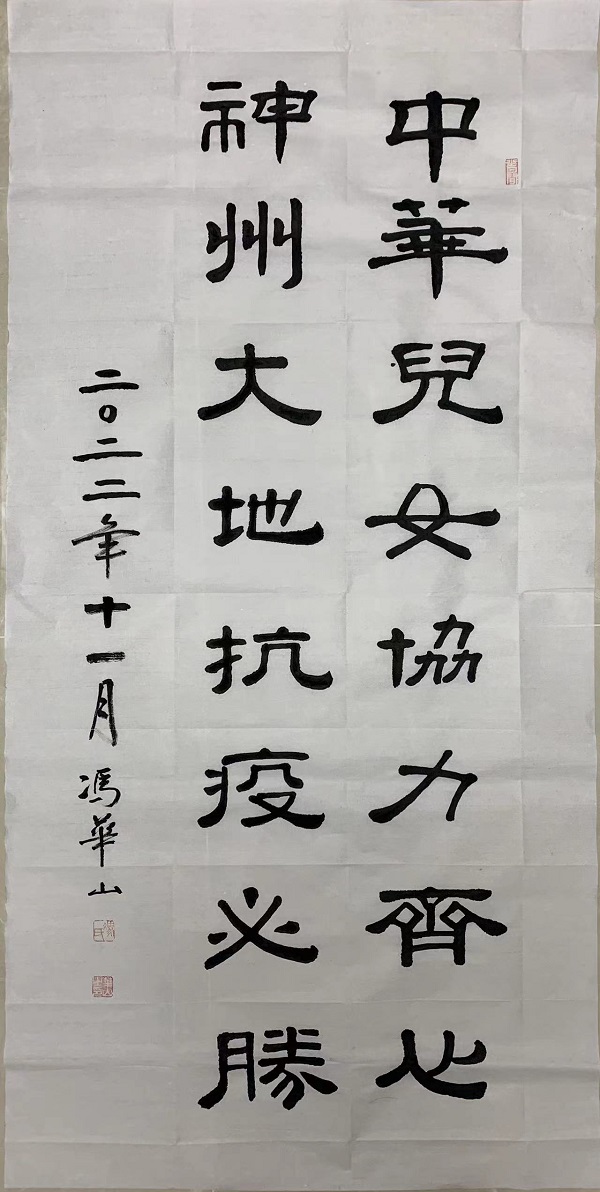 中華兒女協力齊心
神州大地抗疫必勝
二〇二二年十一月馮華山